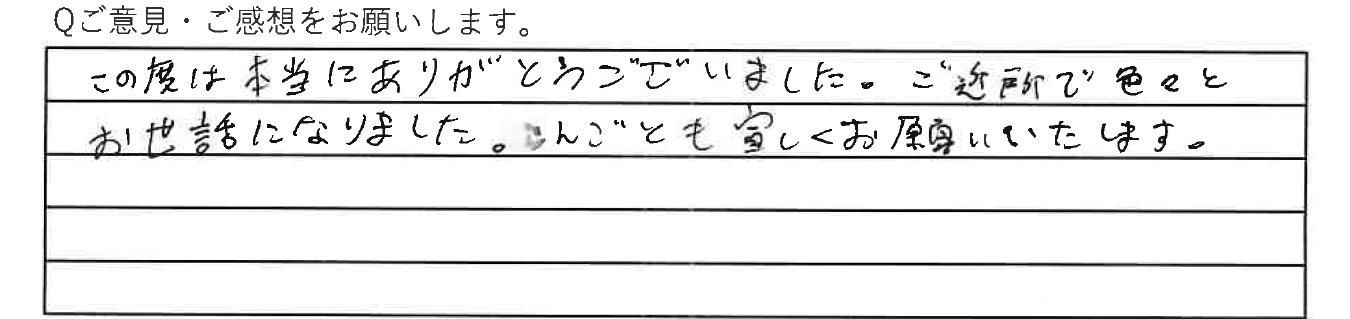 Qご意見・ご感想をお願いします。
この度は本当にありがとうございました。ご近所で色々と
お世話になりました。こんごとも宜しくお願いいたします。